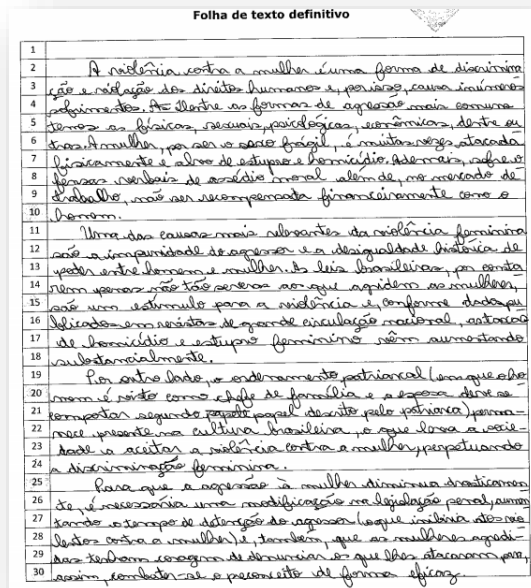 Folha de texto definitivo
1
2 A violência contra a mulher é uma forma de discrimina
3 ção e violação dos direitos humanos e, por isso, causa inúmeros
4 sofrimentos. As Dentre as formas de agressão mais comuns
5 temos as físicas, sexuais, psicológicas, econômicas, dentre ou
6 tras. A mulher, por ser o sexo frágil, é muitas vezes atacada
7 fisicamente e alvo de estupro e homicídio. Ademais, sofre o
8 fensas verbais de assédio moral além de, no mercado de
9 trabalho, não ser recompensada financeiramente como o
10 homem.
11 Uma das causas mais relevantes da violência feminina
12 são a impunidade do agressor e a desigualdade histórica de
13 poder entre homem e mulher. As leis brasileiras, por conta
14 rem penas não tão severas aos que agridem as mulheres,
15 são um estímulo para a violência e, conforme dados pu
16 blicados em revistas de grande circulação nacional, as taxas
17 de homicídio e estupro feminino vêm aumentando
18 substancialmente.
19 Por outro lado, o ordenamento patriarcal (em que o ho
20 mem é visto como chefe de família e a esposa deve se
21 comportar segundo papel descrito pelo patriarca), perma-
22 nece presente na cultura brasileira, o que leva a socie-
23 dade a aceitar a violência contra a mulher, perpetuando
24 a discriminação feminina.
25 Para que a agressão à mulher diminua drasticamen
26 te, é necessária uma modificação na legislação penal, aumen
27 tando o tempo de detenção do agressor (o que inibiria atos vio
28 lentos contra a mulher) e, também, que as mulheres agredi-
29 das tenham coragem de denunciar os que lhes atacaram para,
30 assim, combater-se o preconceito de forma eficaz.